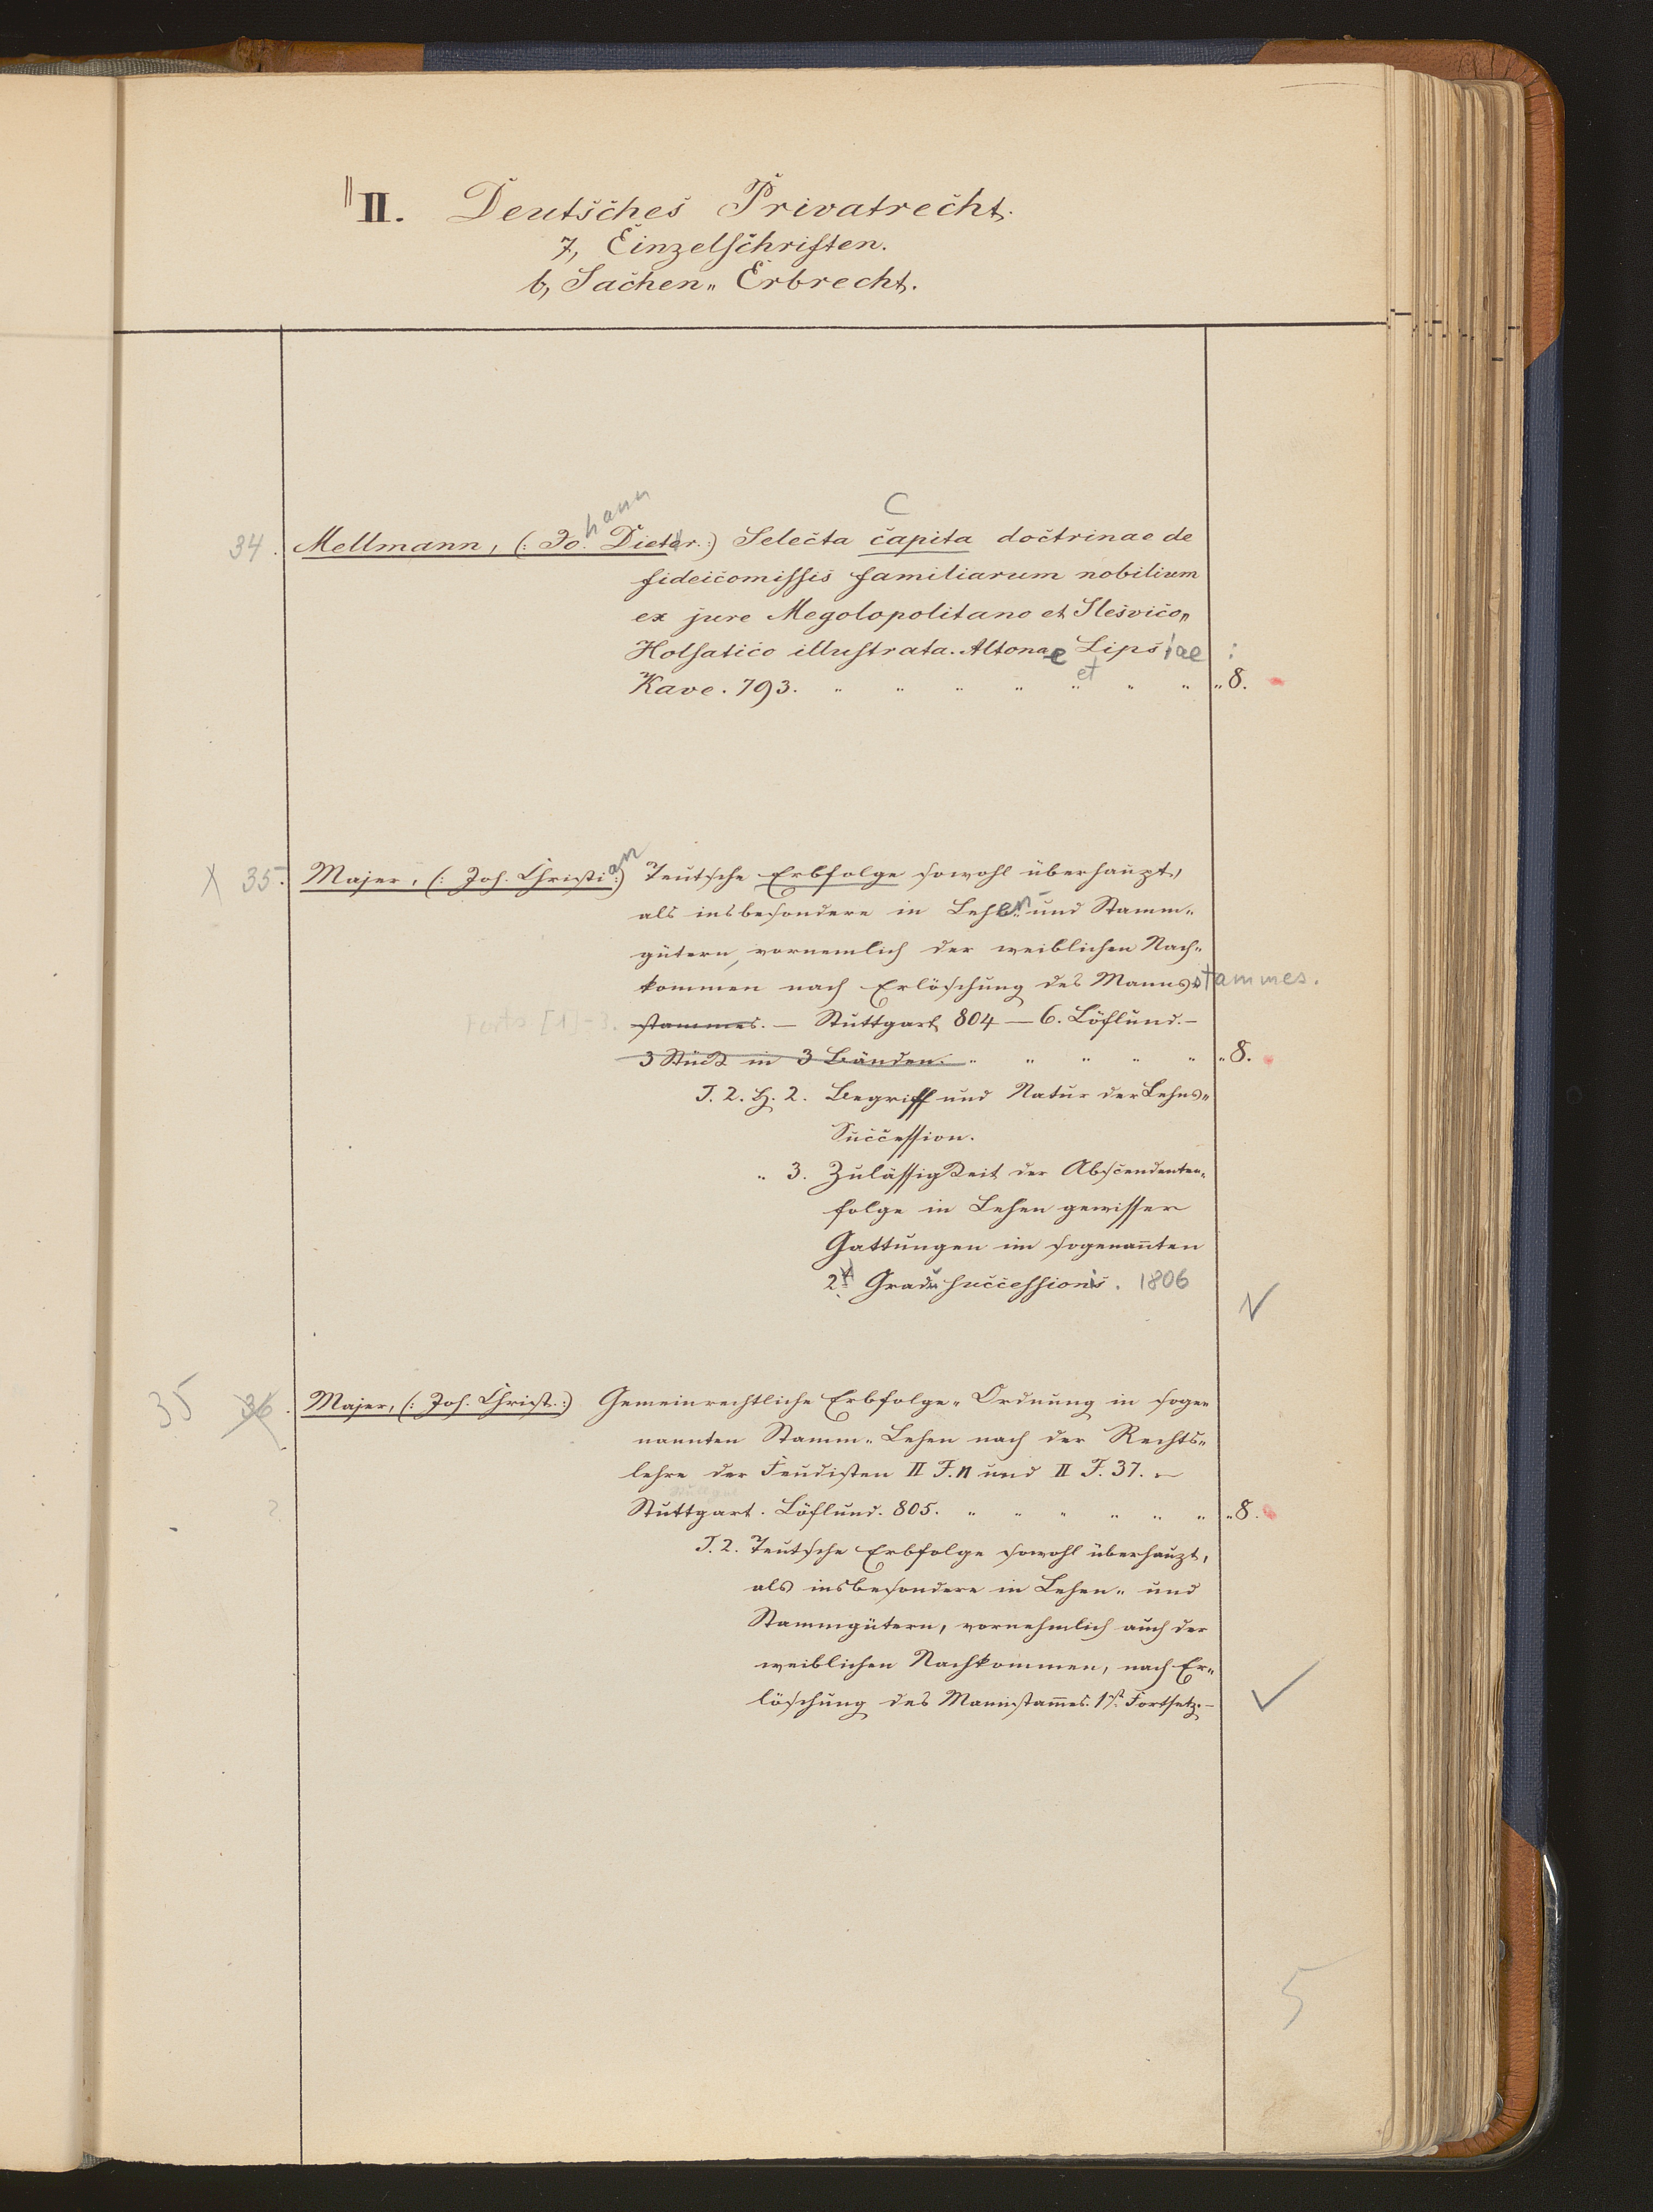 II. Deutsches Privatrecht.
7, Einzelschriften.
b, Sachen„ Erbrecht.
C
hann
34. Mellmann, (: Jo. Dieter.:) Selecta capita doctrinae de
fideicomissis familiarum nobilium
ex jure Megolopolitano et Slesvico„
Holsatico illustrata. Altonae Lipsiae :
et
Kave. 793. „ „ „ „ „ „ „ „ 8.
X 35. Majer, (: Joh. Christian:) Teutsche Erbfolge sowohl überhaupt,
als insbesondere in Lehen- und Stamm„
gütern, vornemlich der weiblichen Nach„
kommen nach Erlöschung des Mannsstammes.
Forts [1]-3. stammes. — Stuttgart 804 — 6. Löflund. —
3 Stück in 3 Bänden. „ „ „ „ „ „ 8.
T. 2. H. 2. Begriff und Natur der Lehns„
Succession.
„ 3. Zulässigkeit der Abscendenten„
folge in Lehen gewisser
Gattungen im sogenannten
2. Gradu successionis. 1806
35 36. Majer, (: Joh. Christ.:) Gemeinrechtliche Erbfolge„ Ordnung in soge„
nannten Stamm„ Lehen nach der Rechts„
lehre der Feudisten II F. 11 und II F. 37. —
Stuttgart. Löflund. 805. „ „ „ „ „ „ „ 8.
T. 2. Teutsche Erbfolge sowohl überhaupt,
als insbesondere in Lehen„ und
Stammgütern, vornehmlich auch der
weiblichen Nachkommen, nach Er„
löschung des Mannstammes. 1te Fortsetz. —
5